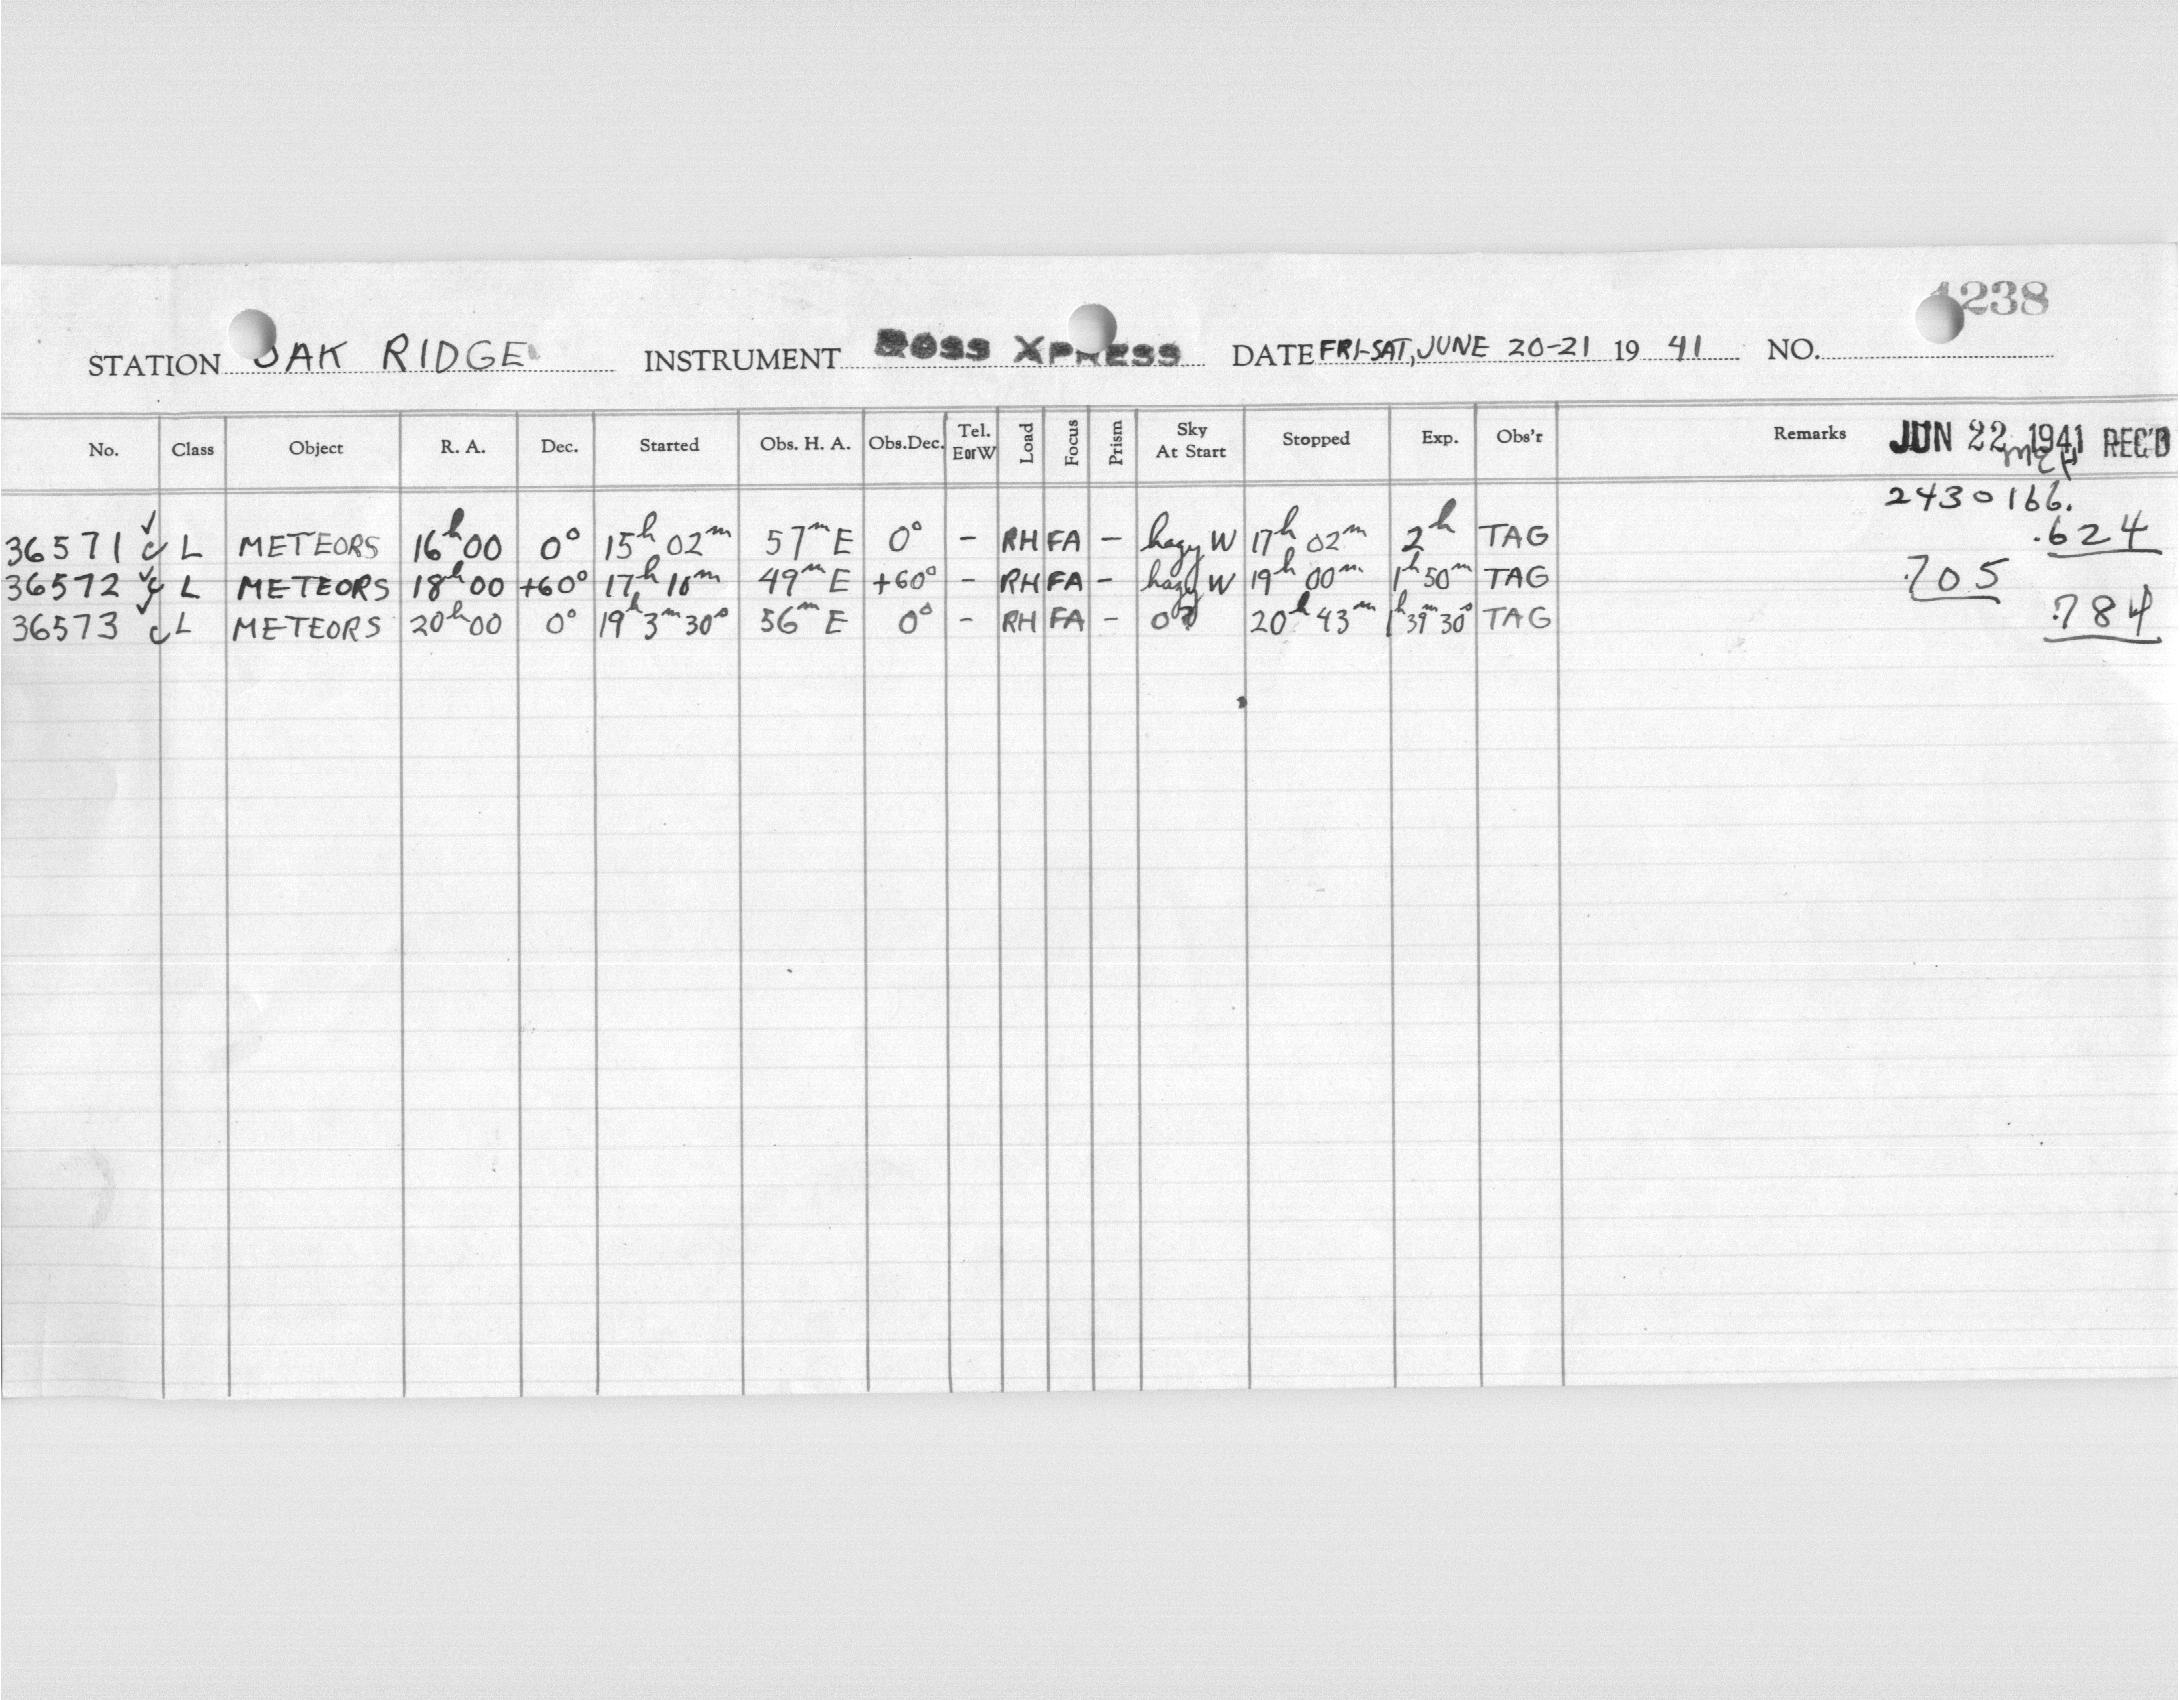 4238
STATION OAK RIDGE INSTRUMENT ROSS XPRESS DATE FRI-SAT, JUNE 20-21 19 41 NO.
No. Class Object R. A. Dec. Started Obs. H. A. Obs.Dec. Tel. EorW Load Focus Prism Sky At Start Stopped Exp. Obs'r Remarks JUN 22 1941 REC'D
2430166.
36571 ✓ c L METEORS 16h00 0° 15h 02m 57m E 0° - RH FA - hazy W 17h 02m 2h TAG .624
36572 ✓ c L METEORS 18h00 +60° 17h 10m 49m E +60° - RH FA - hazy W 19h 00m 1h50m TAG .705
36573 ✓ c L METEORS 20h00 0° 19h 3m 30s 56m E 0° - RH FA - 20h 43m 1h39m30s TAG .784